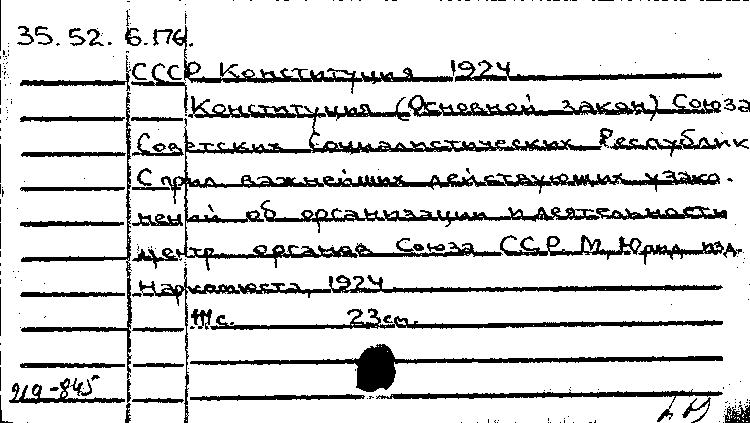 35. 52. 6.176.
СССР. Конституция 1924.
Конституция (Основной закон) Союза
Советских Социалистических Республик
С прил. важнейших действующих узако-
нений об организации и деятельности
центр. органов Союза ССР. М. Юрид. изд.
Наркомюста, 1924
с. 23см.
219-845